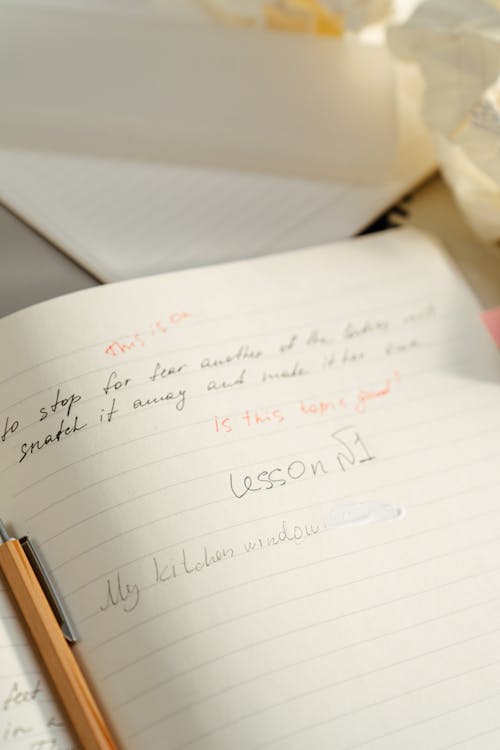 This is on
to stop for fear another of the ladies
snatch it away and make it her own
Is this topic good?
Lesson №1
My kitchen window
feet
in a